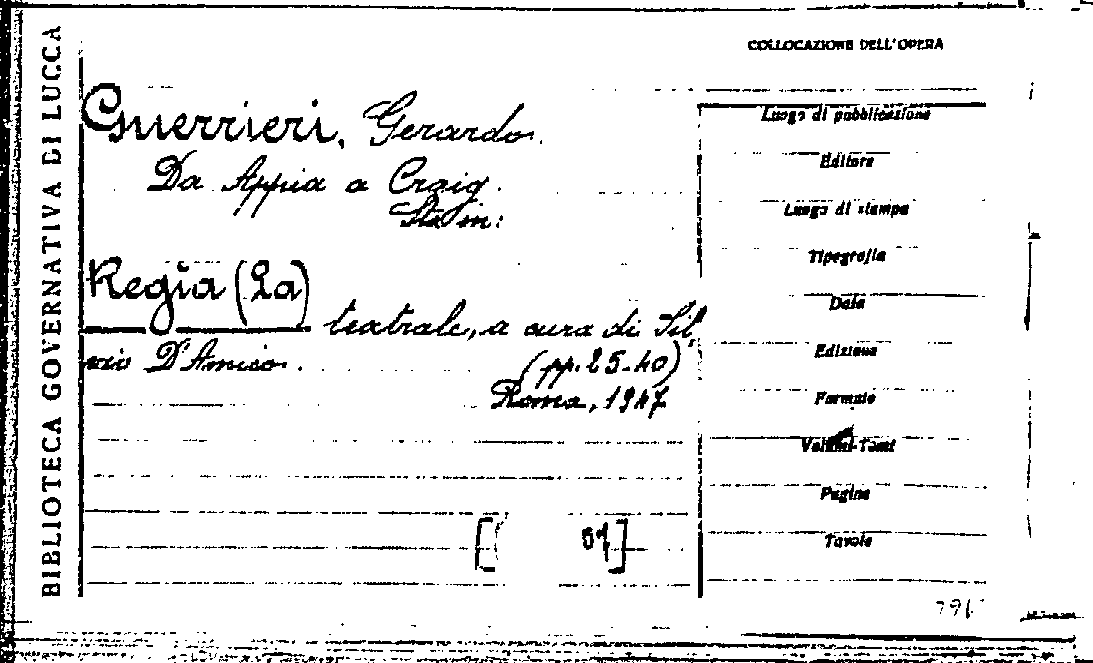 BIBLIOTECA GOVERNATIVA DI LUCCA
COLLOCAZIONE DELL'OPERA
Guerrieri, Gerardo.
Da Appia a Craig.
Sta in:
Regia (La)
teatrale, a cura di Sil-
vio D'Amico. (pp. 25-40)
Roma, 1947
[ ]
Luogo di pubblicazione
Editore
Luogo di stampa
Tipografia
Data
Edizione
Formato
Volumi-Tomi
Pagine
Tavole